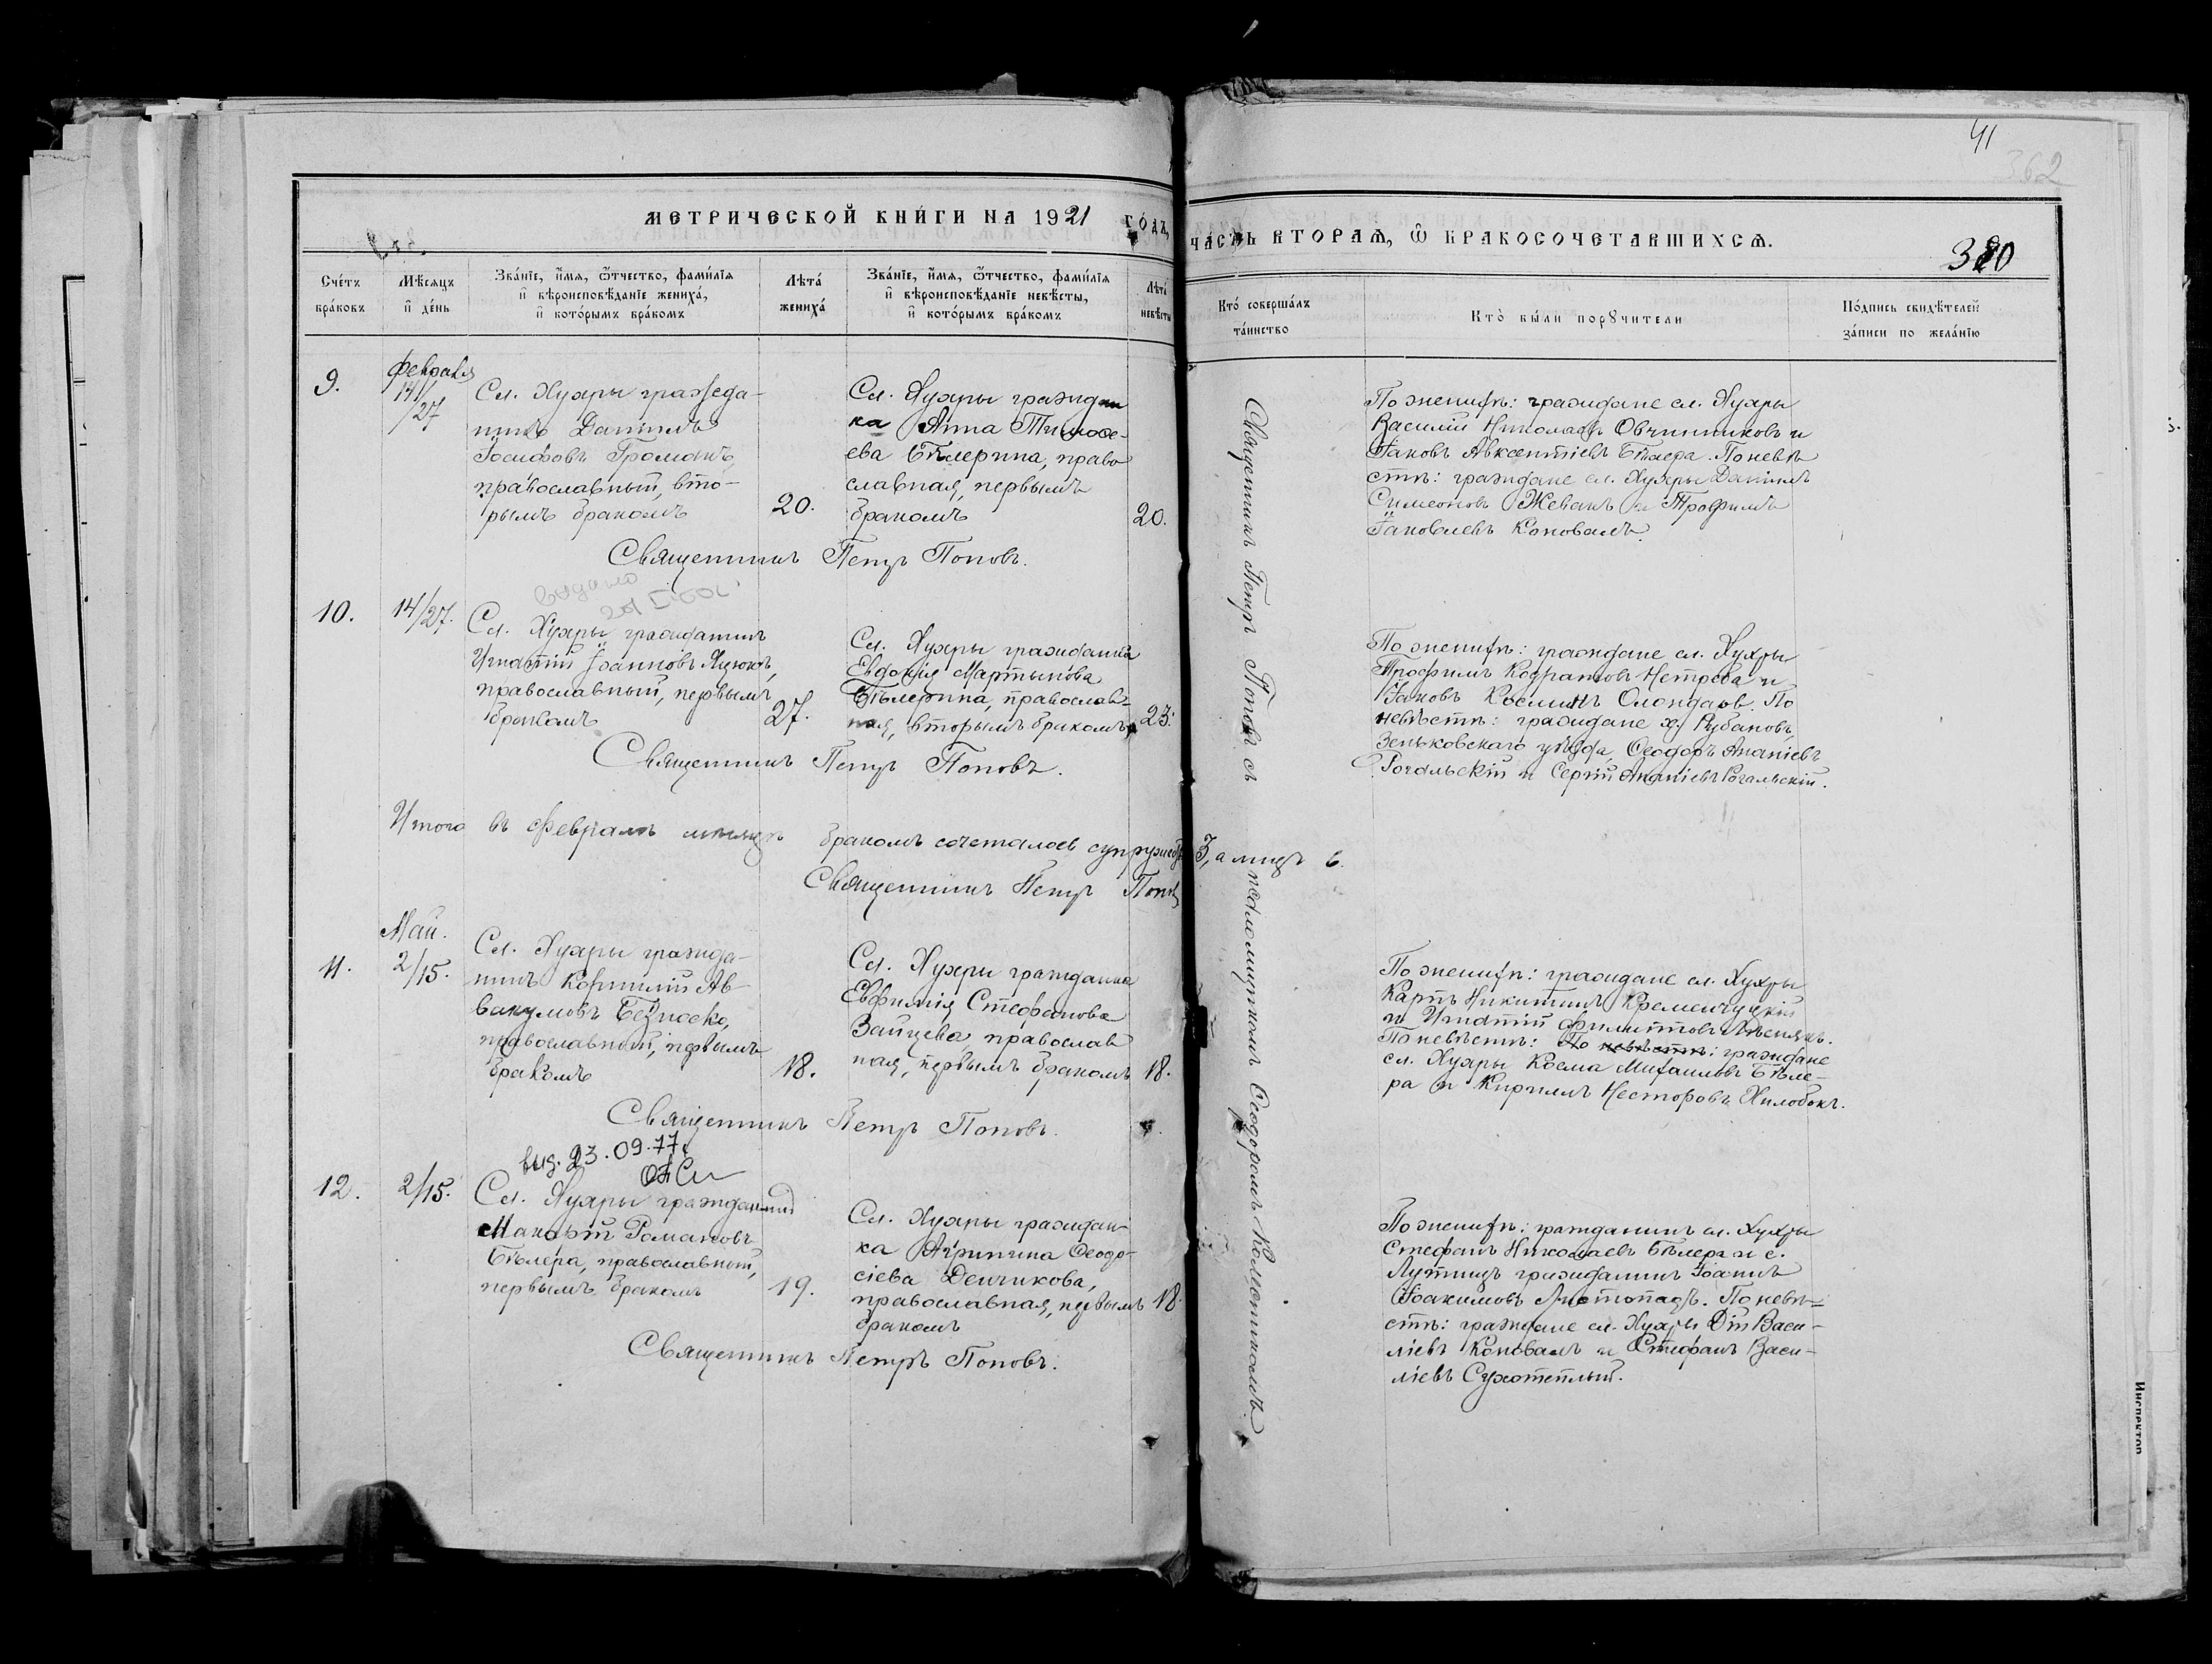 41
362
МЕТРИЧЕСКОЙ КНИ́ГИ НА 1921 ГО́ДЪ,
ЧА́СТЬ ВТОРАѦ, Ѿ БРАКОСОЧЕТАВШИХСѦ.
380
Сче́тъ бра́ковъ
Мѣ́сяцъ и де́нь
Зва́нїе, и́мя, ѻ҆́тчество, фами́лїя и҆ вѣроисповѣ́данїе жениха́, и҆ кото́рымъ бра́комъ
Лѣта́ жениха́
Зва́нїе, и́мя, ѻ҆́тчество, фами́лїя и҆ вѣроисповѣ́данїе невѣ́сты, и҆ кото́рымъ бра́комъ
Лѣта́ невѣ́сты
Кто́ соверша́лъ та́инство
Кто̀ бы́ли порꙋчители
По́дпись свидѣ́телей за́писи по жела́нїю
9.
Февраля
14/27
Сл. Хухры гражда-
нинъ Даніилъ
Іосифовъ Громакъ,
православный, вто-
рымъ бракомъ
20.
Сл. Хухры граждан
ка Анна Тимоѳе-
ева Бѣлерина, право
славная, первымъ
бракомъ
20.
По женихѣ: граждане сл. Хухры
Василій Николаевъ Овчинниковъ и
Іаковъ Авксентіевъ Бѣлера. По невѣ
стѣ: граждане сл. Хухры Даніилъ
Симеоновъ Жеванъ и Трофимъ
Іаковлевъ Коновалъ.
Священникъ Петръ Поповъ.
видано
10.
14/27.
Сл. Хухры гражданинъ
Игнатій Іоанновъ Яцюкъ,
православный, первымъ
бракомъ
27.
Сл. Хухры гражданка
Евдокія Мартынова
Бѣлерина, православ-
ная, вторымъ бракомъ
23.
По женихѣ: граждане сл. Хухры
Трофимъ Кодратовъ Нетреба и
Іаковъ Косминъ Олондарь. По
невѣстѣ: граждане х. Рубановъ,
Зеньковскаго уѣзда, Ѳеодоръ Ананіевъ
Рогальскій и Сергій Ананіевъ Рогальскій.
Священникъ Петръ Поповъ.
Итого въ Февралѣ мѣсяцѣ бракомъ сочеталось супружествъ 3, а лицъ 6.
Священникъ Петръ Поповъ
Май.
11.
2/15.
Сл. Хухры гражда-
нинъ Корнилій Ав-
вакумовъ Безноско,
православный, первымъ
бракомъ
18.
Сл. Хухры гражданка
Евфимія Стефанова
Зайцева, православ
ная, первымъ бракомъ
18.
По женихѣ: граждане сл. Хухры
Карпъ Никитинъ Кременчуцкій
и Игнатій Филипповъ Лѣснякъ.
По невѣстѣ: По невѣстѣ: граждане
сл. Хухры Косма Михаиловъ Бѣле-
ра и Кириллъ Несторовъ Хилобокъ.
Священникъ Петръ Поповъ.
выд. 23.09.77г
12.
2/15.
Сл. Хухры гражданинъ
Макарій Романовъ
Бѣлера, православный,
первымъ бракомъ
19.
Сл. Хухры граждан-
ка Агриппина Ѳеодо-
сіева Денчикова,
православная, первымъ
бракомъ
18.
По женихѣ: гражданинъ сл. Хухры
Стефанъ Николаевъ Бѣлера и с.
Лутищъ гражданинъ Іоаннъ
Іоакимовъ Листопадъ. По невѣ-
стѣ: граждане сл. Хухры Васи-
ліевъ Коновалъ и Стефанъ Васи-
ліевъ Сухотеплый.
Священникъ Петръ Поповъ.
Священникъ Петръ Поповъ съ псаломщикомъ Ѳеодоромъ Колесниковымъ
Инспектор